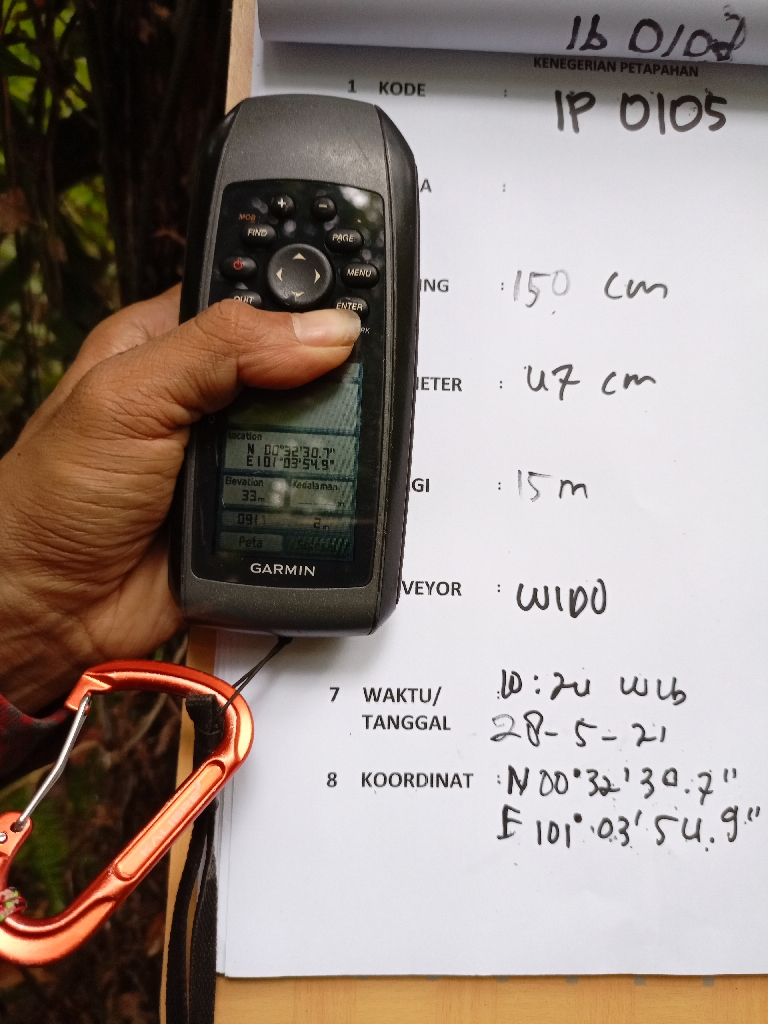 Ib 0102
KENEGERIAN PETAPAHAN
1 KODE :
IP 0105
A :
ING : 150 cm
METER : 47 cm
GI : 15 m
VEYOR : WIDO
7 WAKTU/ TANGGAL
10:24 WIB
28-5-21
8 KOORDINAT : N 00°32'30.7"
E 101°03'54.9"
MOB
FIND
PAGE
MENU
QUIT
ENTER
RK
Location
N 00°32'30.7"
E101°03'54.9"
Elevation
33m
Kedalaman
Peta
GARMIN